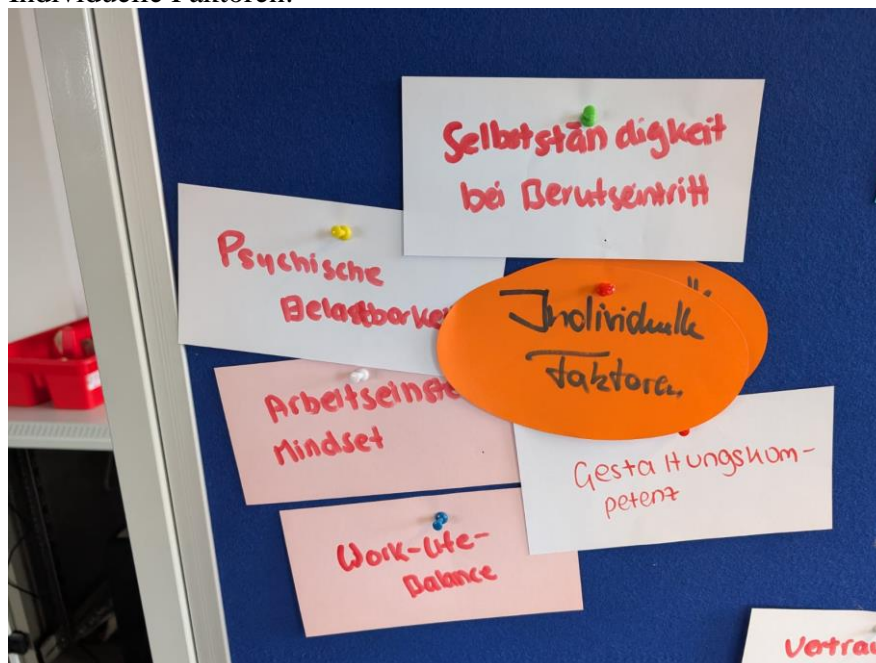 Individuelle Faktoren:
Selbstständigkeit
bei Berufseintritt
Psychische
Belastbarkei
Individuelle
Faktoren
Arbeitseinste
Mindset
Gestaltungskom-
petenz
Work-Life-
Balance
Vertrau